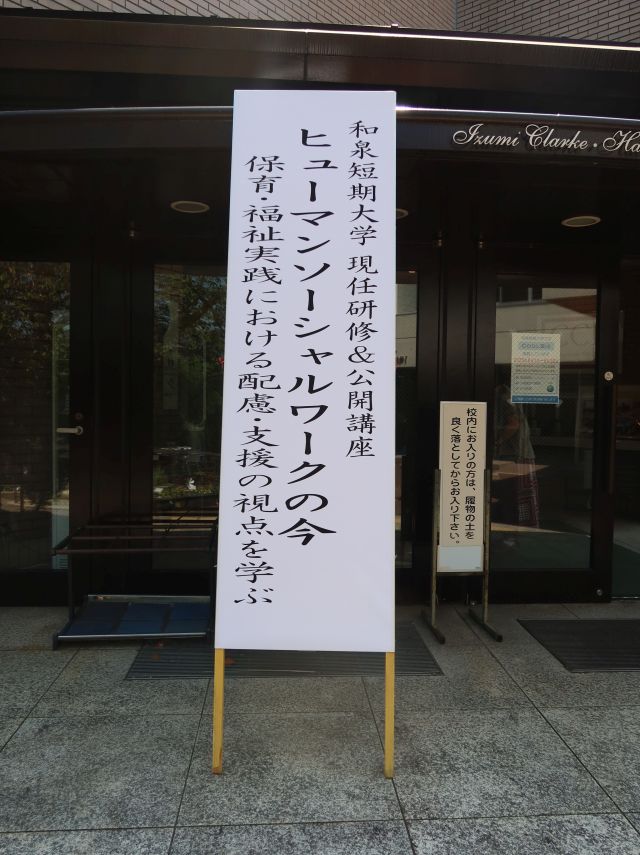 和泉短期大学 現任研修&公開講座
ヒューマンソーシャルワークの今
保育・福祉実践における配慮・支援の視点を学ぶ
Izumi Clarke・Ha
校内にお入りの方は、履物の土を
良く落としてからお入り下さい。